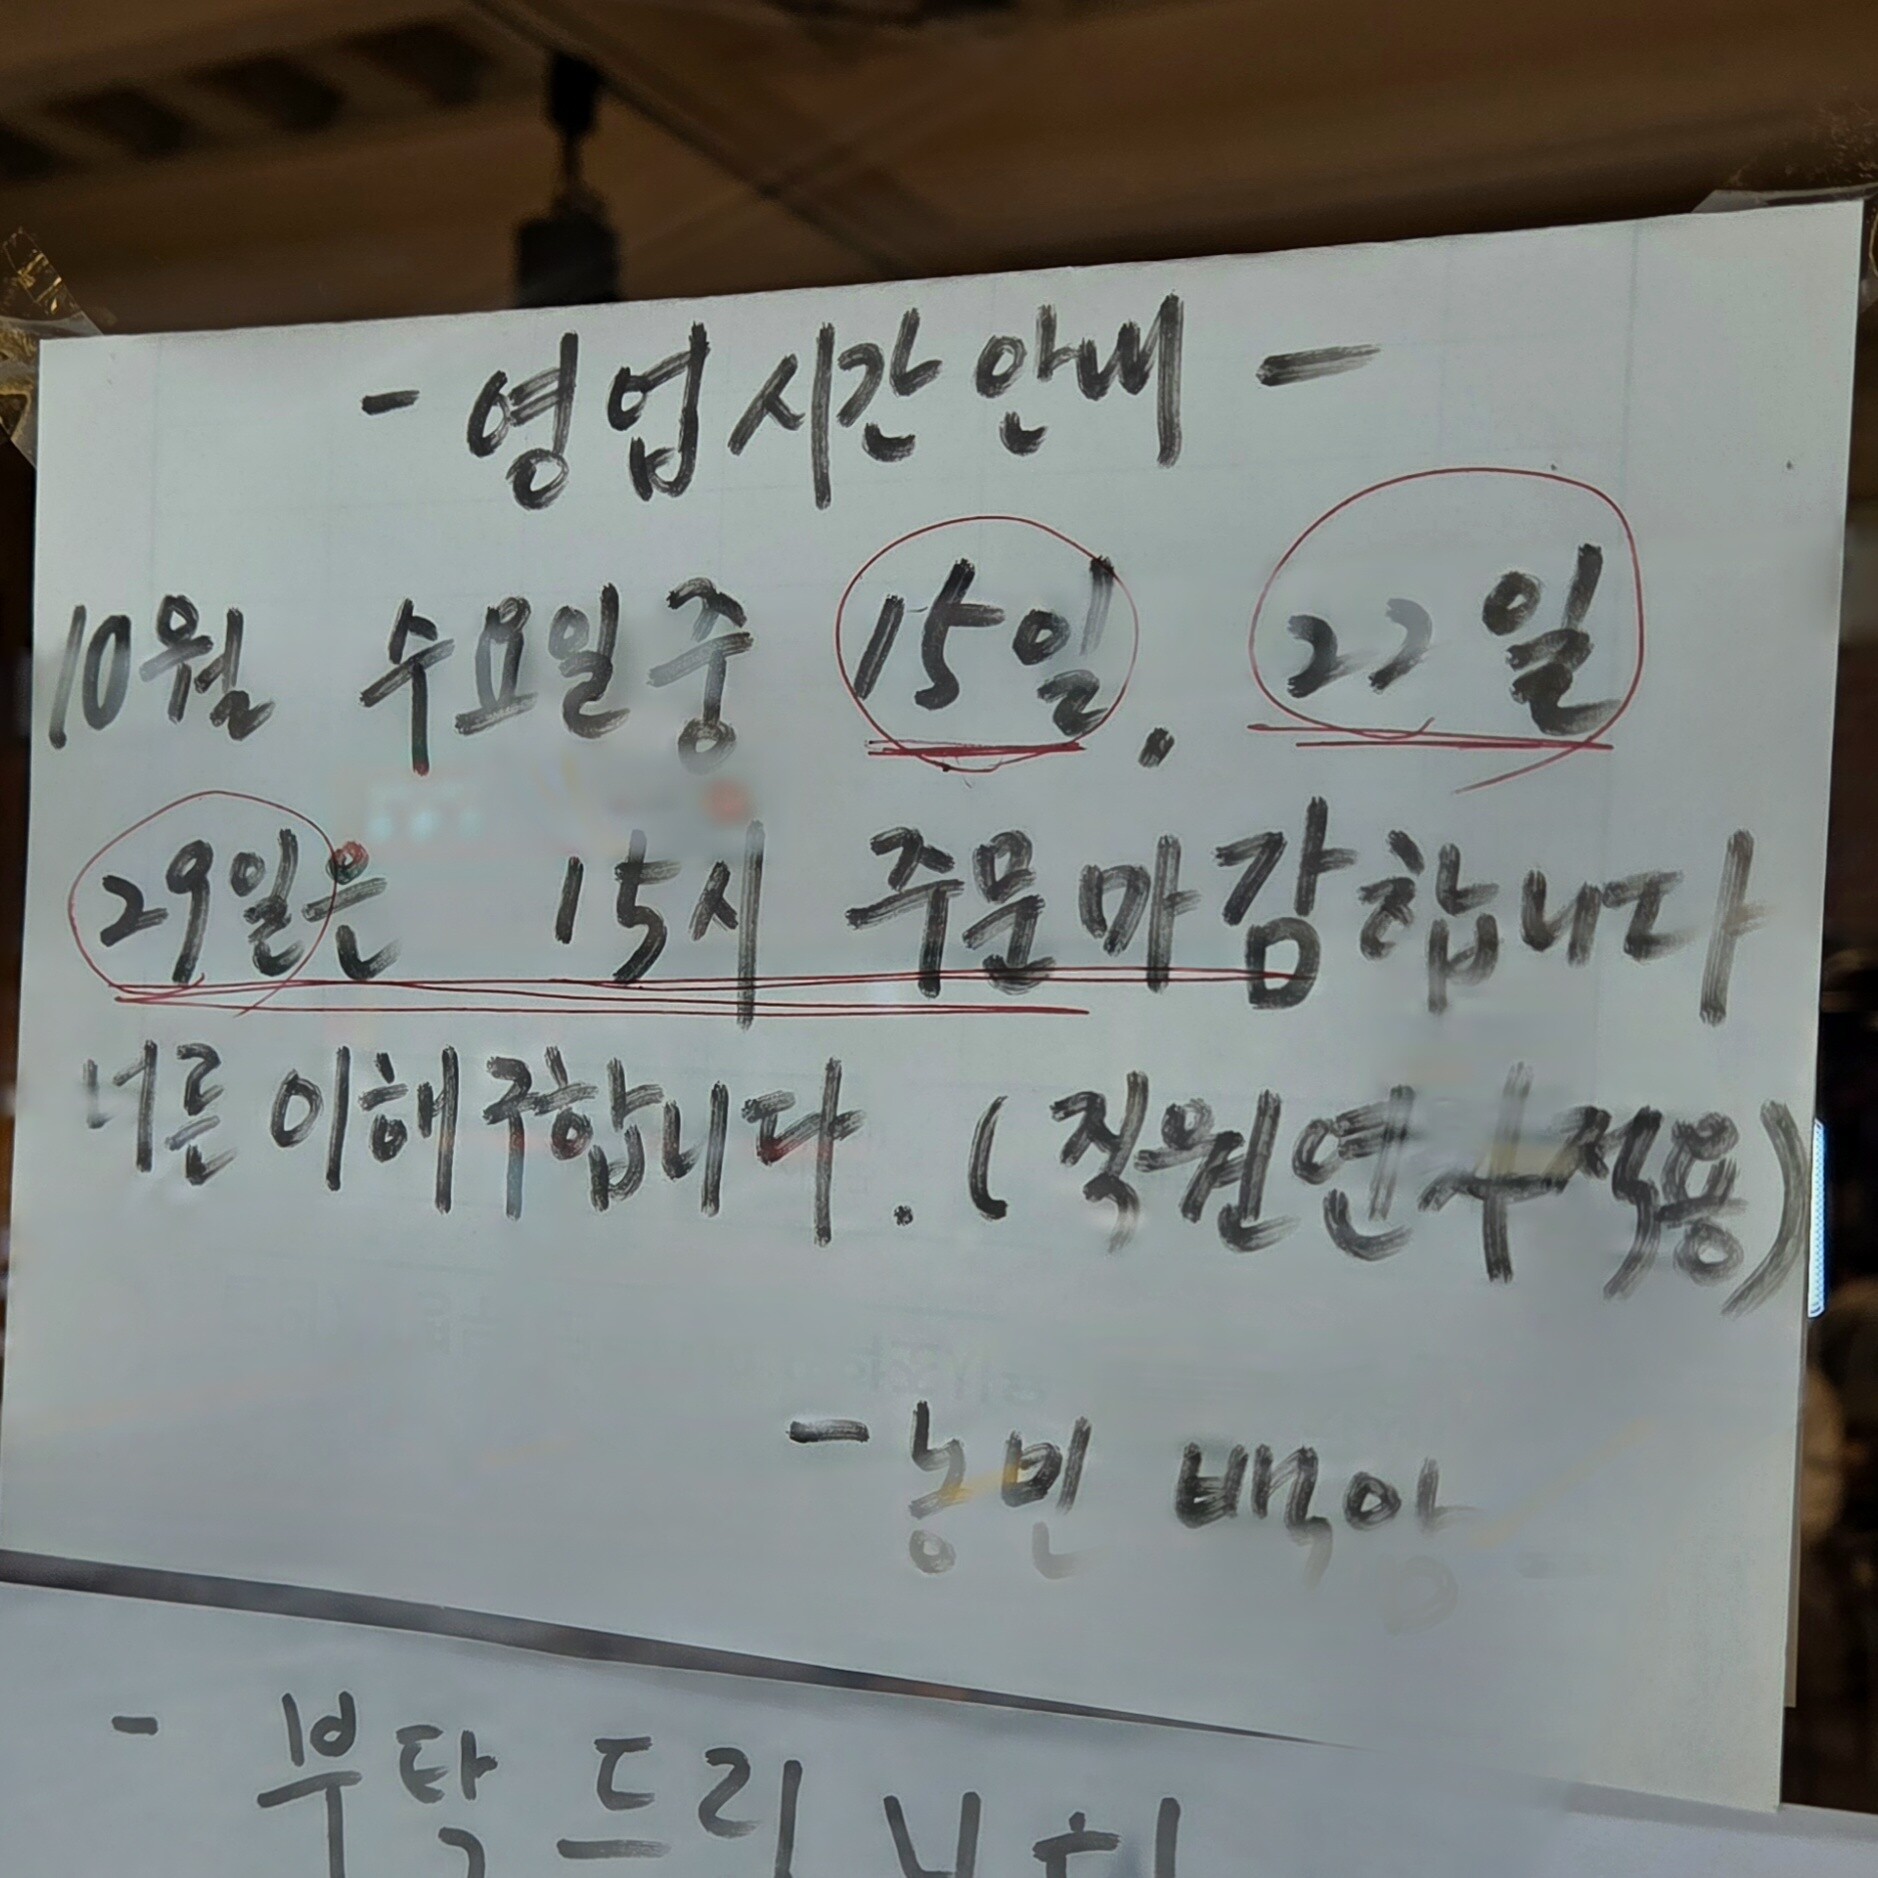 - 영업시간안내 -
10월 수요일중 15일. 22일
29일은 15시 주문마감합니다
너른 이해구합니다. (직원연수적용)
- 농민 백암
- 부탁드리